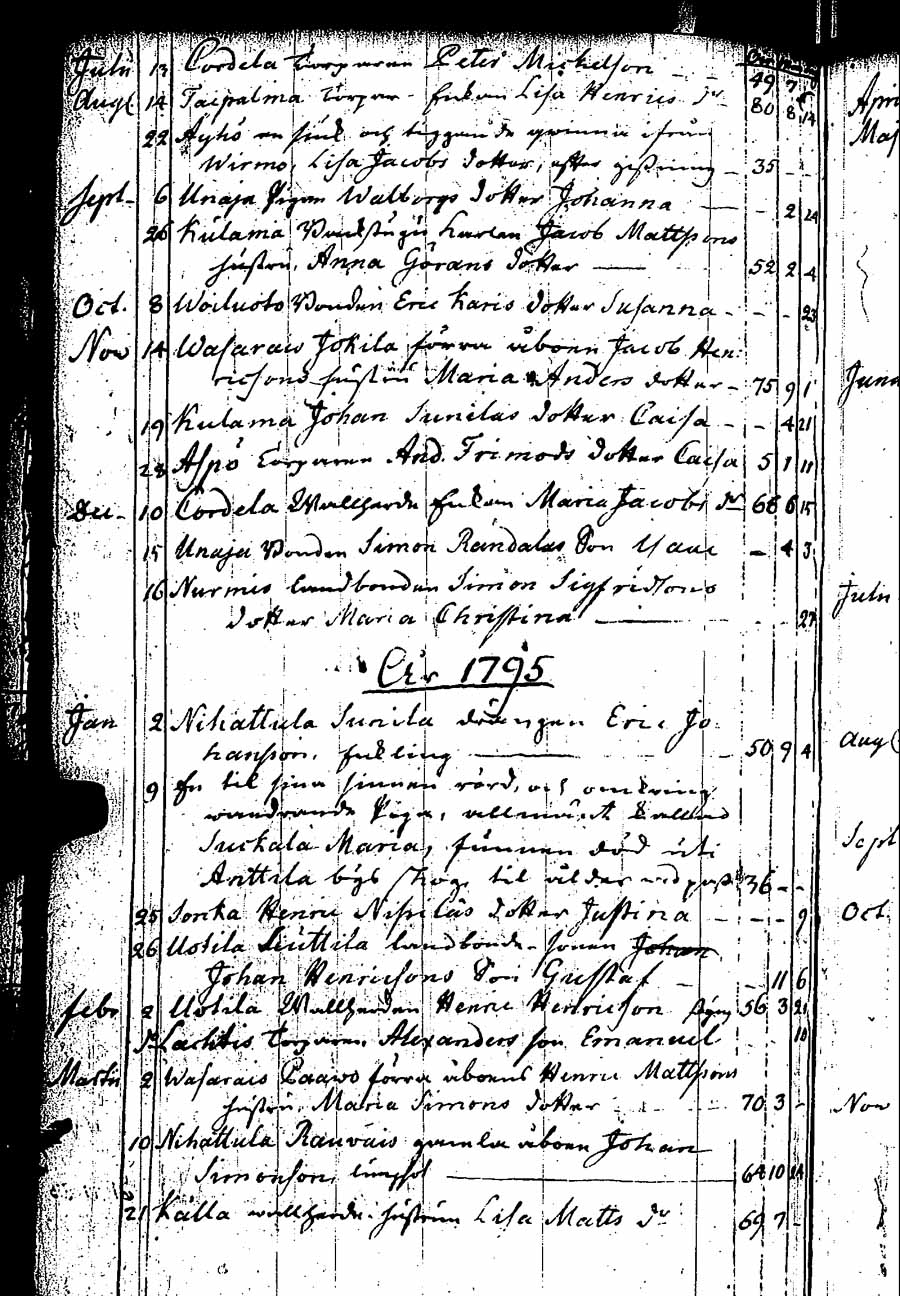 Julii 13 Cordela Torparen Peter Michelson - - 49 7
Aug 14 Taipalma Torpar- Enkan Lisa Henrics dr 80 8 14
22 Ayhö en siuk och tiggande qvinna ifrån
Wirmo, Lisa Jacobs dotter, efter gissning - 35 - -
Sept- 6 Unaja Pigan Walborgs dotter Johanna - 2 24
26 Kulama Backstugu karlen Jacob Mattsons
hustru, Anna Görans dotter - 52 2 4
Oct. 8 Woiluoto Bonden Eric Karis dotter Susanna - - - 23
Nov 14 Wasarais Jokila förra åboen Jacob Hen:
ricsons hustru Maria Anders dotter - 75 9 1
19 Kulama Johan Sunilas dotter Caisa - - 4 21
28 Aspö Torparen And. Trimods dotter Caisa 5 1 11
Dec- 10 Cordela Wallherde Enkan Maria Jacobs dr 68 6 15
15 Unaja Bonden Simon Rändalas Son Isaac - 4 3
16 Nurmis landbonden Simon Sigfridsons
dotter Maria Christina - 27
År 1795
Jan 2 Nihattula Sunila drängen Eric Jo
hansson, - 50 9 4
9 En til sina sinnen rörd, och omkring
wandrande Piga, allmänt kallad
Suckala Maria, funnen död uti
Anttila bys skog, til ålder wid pass 36 - -
25 Sorka Henric Nissilas dotter Justina - - - 9
26 Uotila Leuttila landbonde-sonen Johan
Johan Henricsons Son Gustaf - - 11 6
Febr 2 Uotila Wallherden Henric Henricsson 56 3 21
Lachtis Torparen Alexanders son Emanuel 10
Martii 2 Wasarais Paawo förra åboens Henric Mattsons
hustru, Maria Simons dotter - 70 3 -
10 Nihattula Rauvais gamla åboen Johan
Simonson, - 64 10 14
21 Källa wallherde-hustrun Lisa Matts dr 69 7 -
Maj
Junii
Julii
Aug
Sept
Oct.
Nov